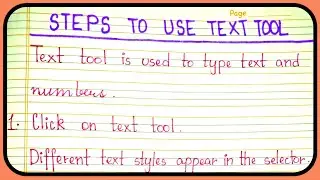 Page
STEPS TO USE TEXT TOOL
Text tool is used to type text and
numbers.
1. Click on text tool.
Different text styles appear in the selector.